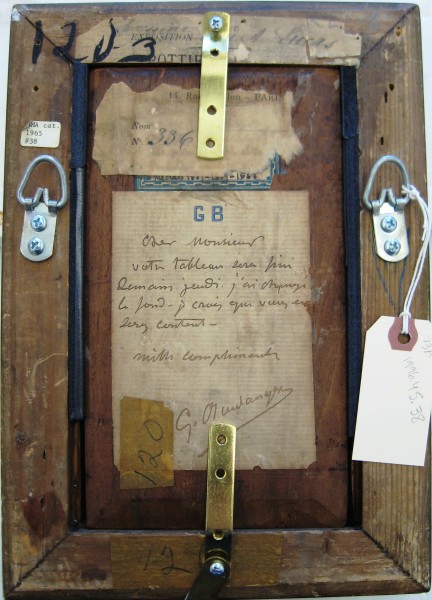 EXPOSITION
POTTI
14, Ro PARI
Nom
N° 336
cat.
1965
#38
G B
Cher Monsieur
votre tableau sera fini
Demain jeudi. j'ai changé
le fond - je crois que vous en
serez content -
mille compliments
G. Boulanger
120
12
38